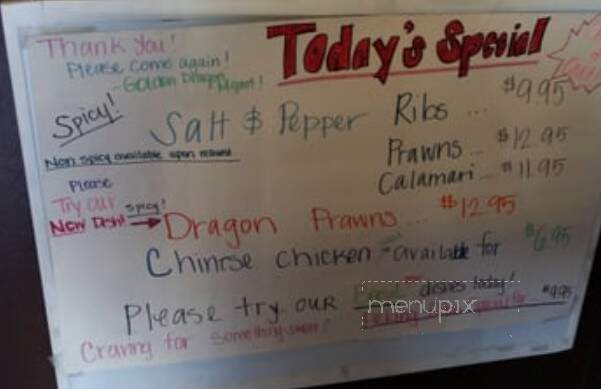 Thank you!
Please come again!
-Golden Dragon
Today's Special
Spicy!
Salt & Pepper
Non spicy available upon request
Ribs ... $9.95
Prawns ... $12.95
Calamari ... $11.95
Please
Try our spicy!
New Dish! → Dragon Prawns ... $12.95
Chinese chicken available for $6.95
Please try our dishes today!
$9.95
Craving for something sweet?
menupix